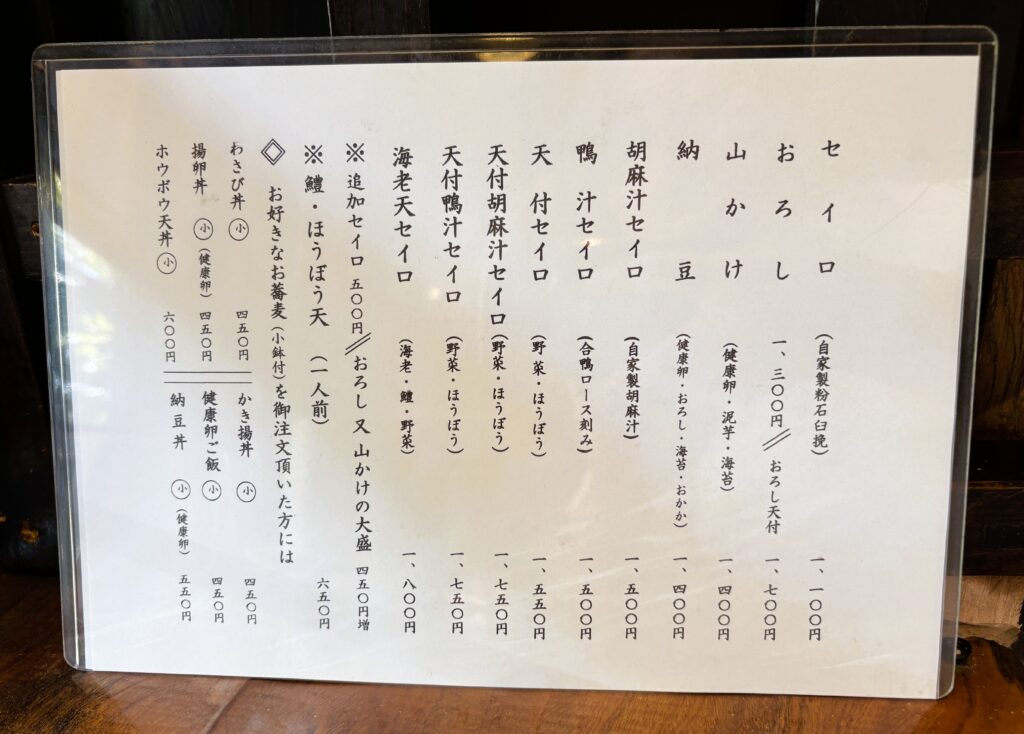 セイロ （自家製粉石臼挽） 一、一〇〇円
おろし 一、三〇〇円 // おろし天付 一、七〇〇円
山かけ （健康卵・泥芋・海苔） 一、四〇〇円
納豆 （健康卵・おろし・海苔・おかか） 一、四〇〇円
胡麻汁セイロ （自家製胡麻汁） 一、五〇〇円
鴨汁セイロ （合鴨ロース刻み） 一、五〇〇円
天付セイロ （野菜・ほうぼう） 一、五五〇円
天付胡麻汁セイロ （野菜・ほうぼう） 一、七五〇円
天付鴨汁セイロ （野菜・ほうぼう） 一、七五〇円
海老天セイロ （海老・鱧・野菜） 一、八〇〇円
※ 追加セイロ 五〇〇円 // おろし又山かけの大盛 四五〇円増
※ 鱧・ほうぼう天 （一人前） 六五〇円
◇ お好きなお蕎麦（小鉢付）を御注文頂いた方には
わさび丼 小 四五〇円
揚卵丼 小 （健康卵） 四五〇円
ホウボウ天丼 小 六〇〇円
かき揚丼 小 四五〇円
健康卵ご飯 小 四五〇円
納豆丼 小 （健康卵） 五五〇円